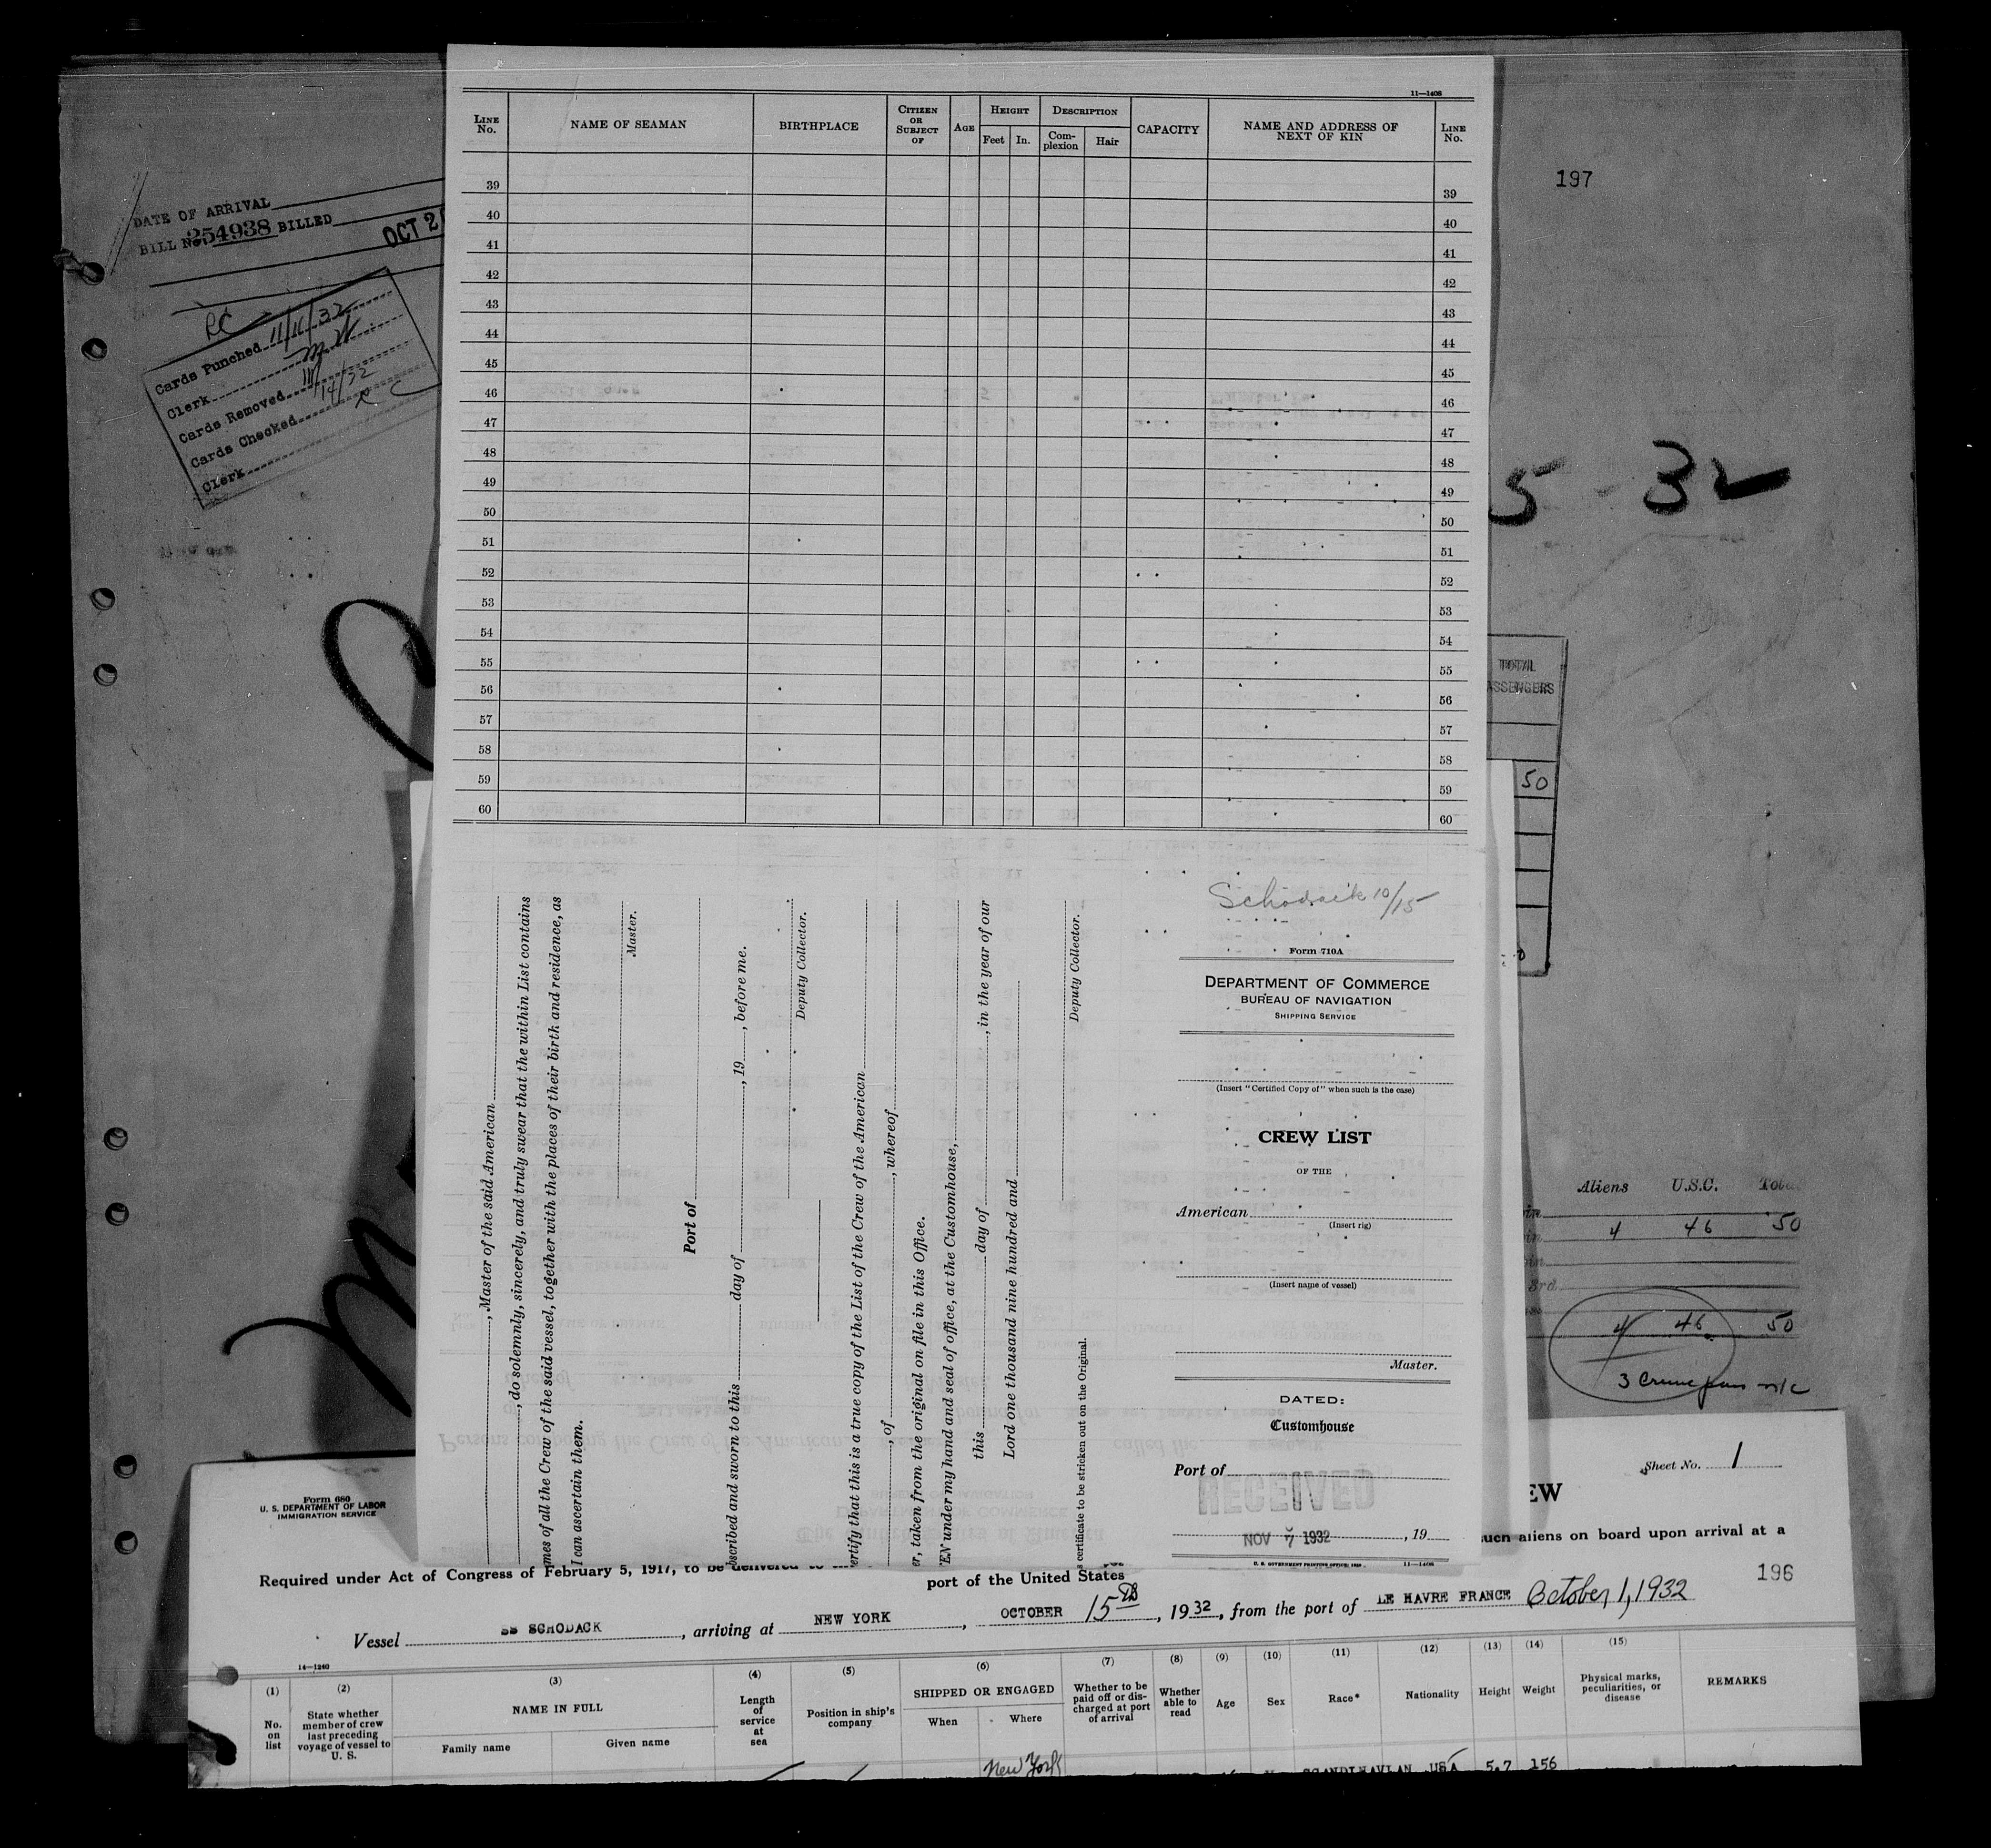 11—1408
LINE No. NAME OF SEAMAN BIRTHPLACE CITIZEN OR SUBJECT OF AGE HEIGHT Feet In. DESCRIPTION Complexion Hair CAPACITY NAME AND ADDRESS OF NEXT OF KIN LINE No.
39 39
40 40
41 41
42 42
43 43
44 44
45 45
46 46
47 47
48 48
49 49
50 50
51 51
52 52
53 53
54 54
55 55
56 56
57 57
58 58
59 59
60 60
DATE OF ARRIVAL
BILL No. 254938 BILLED OCT 2
RC
Cards Punched 11/11/32
Clerk
Cards Removed
Cards Checked 11/14/32
Clerk R C
197
5-32
TOTAL
PASSENGERS
50
, Master of the said American
, do solemnly, sincerely, and truly swear that the within List contains
mes of all the Crew of the said vessel, together with the places of their birth and residence, as
I can ascertain them.
Master.
Port of
bscribed and sworn to this day of , 19 , before me.
Deputy Collector.
ertify that this is a true copy of the List of the Crew of the American
, of , whereof
er, taken from the original on file in this Office.
EN under my hand and seal of office, at the Customhouse,
this day of , in the year of our
Lord one thousand nine hundred and
Deputy Collector.
s certificate to be stricken out on the Original.
Schodack 10/15
Form 710A
DEPARTMENT OF COMMERCE
BUREAU OF NAVIGATION
SHIPPING SERVICE
(Insert "Certified Copy of" when such is the case)
CREW LIST
OF THE
American
(Insert rig)
(Insert name of vessel)
Master.
DATED:
Customhouse
Port of
RECEIVED
NOV 7 1932 , 19
U. S. GOVERNMENT PRINTING OFFICE: 11—1408
Aliens U.S.C. Total
4 46 50
3rd
4 46 50
3
Sheet No. 1
Form 680
U. S. DEPARTMENT OF LABOR
IMMIGRATION SERVICE
EW
Required under Act of Congress of February 5, 1917, to be delivered to such aliens on board upon arrival at a
port of the United States
196
Vessel SS SCHODACK , arriving at NEW YORK , OCTOBER 15th , 1932 , from the port of LE HAVRE FRANCE October 1, 1932
14—1240
(1) No. on list
(2) State whether member of crew last preceding voyage of vessel to U. S.
(3) NAME IN FULL Family name Given name
(4) Length of service at sea
(5) Position in ship's company
(6) SHIPPED OR ENGAGED When Where
(7) Whether to be paid off or discharged at port of arrival
(8) Whether able to read
(9) Age
(10) Sex
(11) Race*
(12) Nationality
(13) Height
(14) Weight
(15) Physical marks, peculiarities, or disease
REMARKS
New York SCANDINAVIAN USA 5.7 156